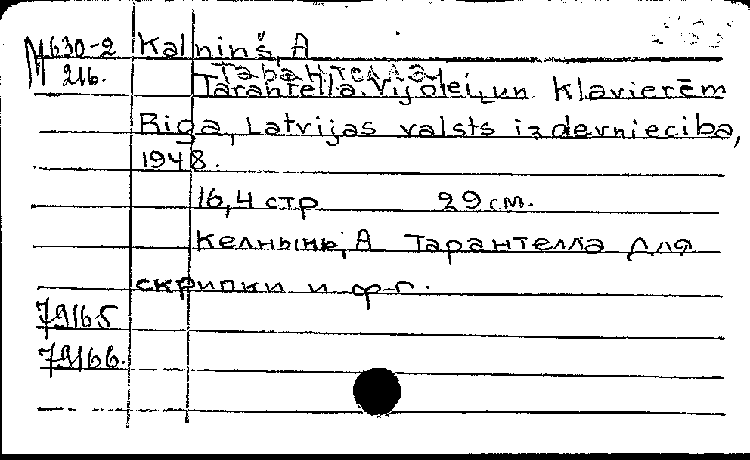 М 630-2 Kalninš, A
216. Тарантелла
Tarantella. Vijolei, un Klavierēm
Riga, Latvijas valsts izdevnieciba,
1948.
16,4 стр 29 см.
Келнынь, А Тарантелла для
скрипки и ф-п.
79165
79166.